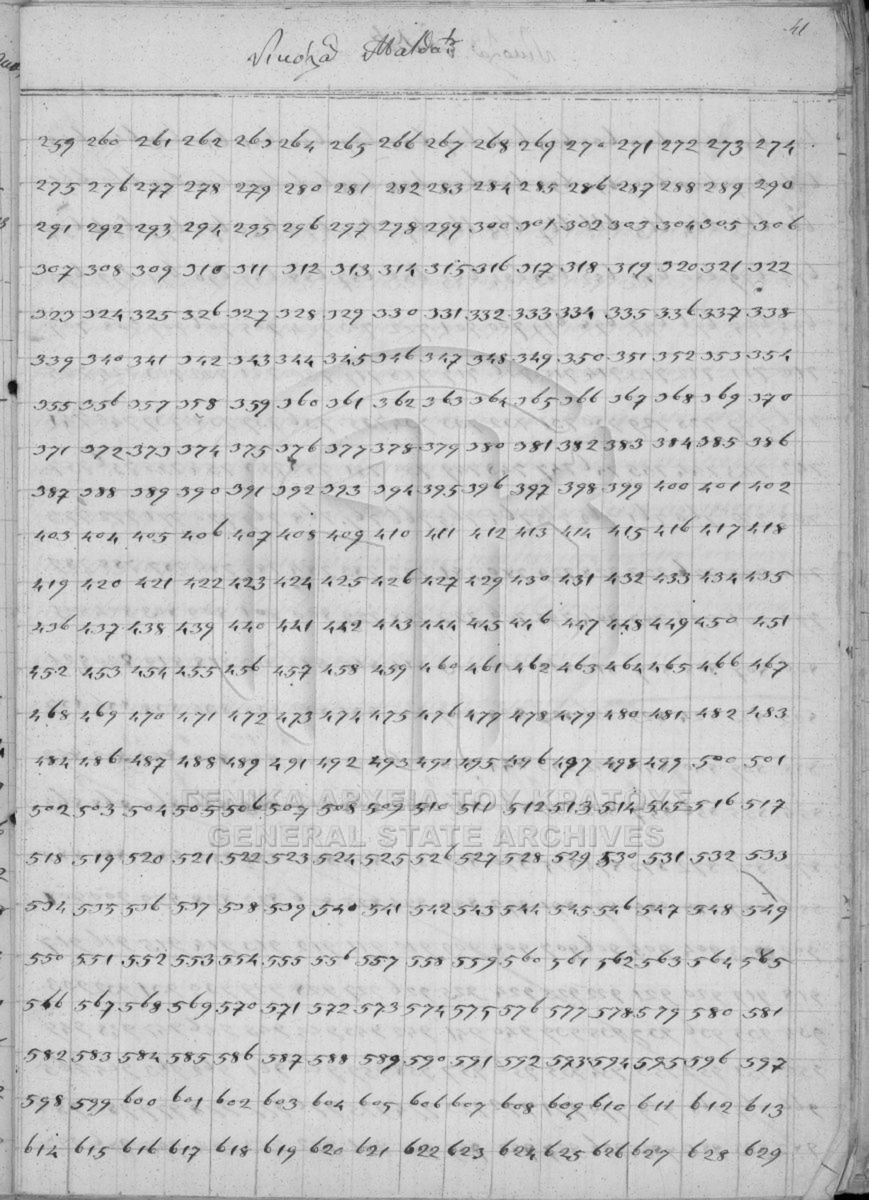 41
259 260 261 262 263 264 265 266 267 268 269 270 271 272 273 274
275 276 277 278 279 280 281 282 283 284 285 286 287 288 289 290
291 292 293 294 295 296 297 298 299 300 301 302 303 304 305 306
307 308 309 310 311 312 313 314 315 316 317 318 319 320 321 322
323 324 325 326 327 328 329 330 331 332 333 334 335 336 337 338
339 340 341 342 343 344 345 346 347 348 349 350 351 352 353 354
355 356 357 358 359 360 361 362 363 364 365 366 367 368 369 370
371 372 373 374 375 376 377 378 379 380 381 382 383 384 385 386
387 388 389 390 391 392 393 394 395 396 397 398 399 400 401 402
403 404 405 406 407 408 409 410 411 412 413 414 415 416 417 418
419 420 421 422 423 424 425 426 427 429 430 431 432 433 434 435
436 437 438 439 440 441 442 443 444 445 446 447 448 449 450 451
452 453 454 455 456 457 458 459 460 461 462 463 464 465 466 467
468 469 470 471 472 473 474 475 476 477 478 479 480 481 482 483
484 486 487 488 489 491 492 493 494 495 496 497 498 499 500 501
502 503 504 505 506 507 508 509 510 511 512 513 514 515 516 517
ΓΕΝΙΚΑ ΑΡΧΕΙΑ ΤΟΥ ΚΡΑΤΟΥΣ
GENERAL STATE ARCHIVES
518 519 520 521 522 523 524 525 526 527 528 529 530 531 532 533
534 535 536 537 538 539 540 541 542 543 544 545 546 547 548 549
550 551 552 553 554 555 556 557 558 559 560 561 562 563 564 565
566 567 568 569 570 571 572 573 574 575 576 577 578 579 580 581
582 583 584 585 586 587 588 589 590 591 592 593 594 595 596 597
598 599 600 601 602 603 604 605 606 607 608 609 610 611 612 613
614 615 616 617 618 619 620 621 622 623 624 625 626 627 628 629